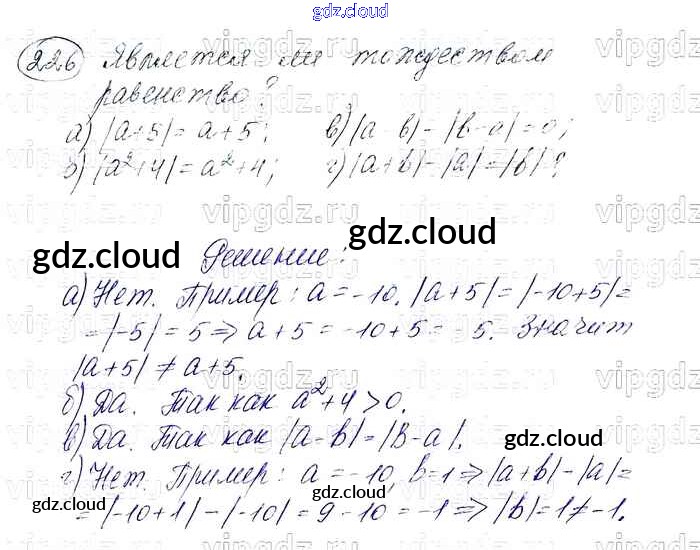 gdz.cloud
226 Является ли тождеством
равенство?
а) |a+5| = a+5; в) |a-b|-|b-a|=0;
б) |a²+4| = a²+4; г) |a+b|-|a|=|b|?
gdz.cloud gdz.cloud
Решение:
а) Нет. Пример: a=-10. |a+5|=|-10+5|=
=|-5|=5 => a+5=-10+5=-5. Значит
|a+5| ≠ a+5.
б) Да. Так как a²+4>0.
в) Да. Так как |a-b|=|b-a|.
gdz.cloud
г) Нет. Пример: a=-10, b=1 => |a+b|-|a|=
=|-10+1|-|-10|=9-10=-1 => |b|=1≠-1.
gdz.cloud gdz.cloud
vipgdz.ru